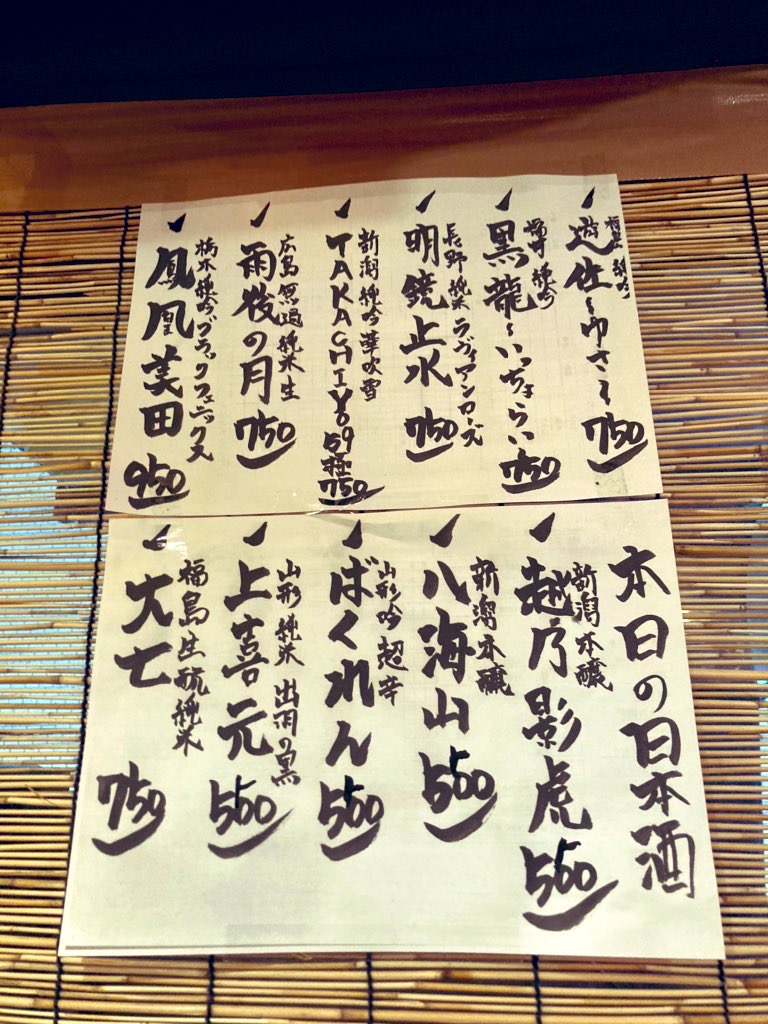 純吟
遊佐〜ゆさ〜 750
福井 純吟
黒龍〜いっちょらい 750
長野 純米 ラヴィアンローズ
明鏡止水 750
新潟 純吟 華吹雪
TAKACHIYO 59 極 750
広島 無過純米生
雨後の月 750
栃木 純吟 ブラックフェニックス
鳳凰美田 950
本日の日本酒
新潟 本醸
越乃影虎 550
新潟 本醸
八海山 550
山形 吟 超辛
ばくれん 550
山形 純米 出羽の黒
上喜元 550
福島 生酛純米
大七 750